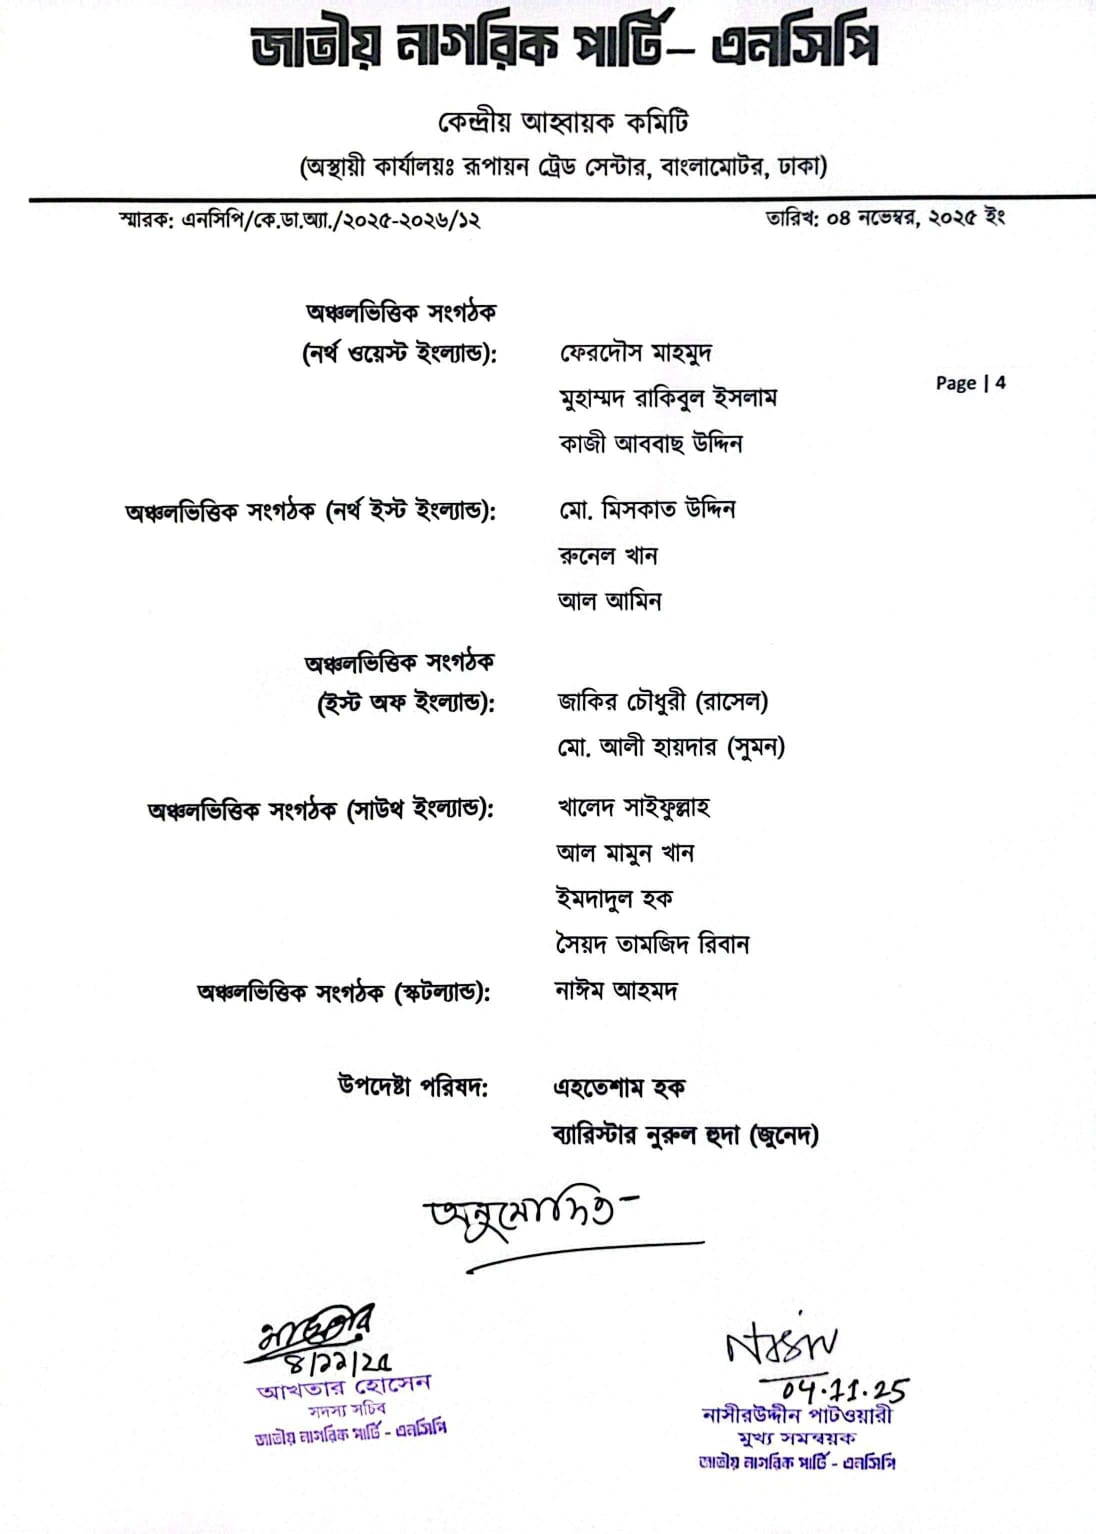 জাতীয় নাগরিক পার্টি– এনসিপি
কেন্দ্রীয় আহ্বায়ক কমিটি
(অস্থায়ী কার্যালয়ঃ রূপায়ন ট্রেড সেন্টার, বাংলামোটর, ঢাকা)
স্মারক: এনসিপি/কে.ডা.অ্যা./২০২৫-২০২৬/১২ তারিখ: ০৪ নভেম্বর, ২০২৫ ইং
অঞ্চলভিত্তিক সংগঠক
(নর্থ ওয়েস্ট ইংল্যান্ড): ফেরদৌস মাহমুদ
Page | 4
মুহাম্মদ রাকিবুল ইসলাম
কাজী আববাছ উদ্দিন
অঞ্চলভিত্তিক সংগঠক (নর্থ ইস্ট ইংল্যান্ড): মো. মিসকাত উদ্দিন
রুনেল খান
আল আমিন
অঞ্চলভিত্তিক সংগঠক
(ইস্ট অফ ইংল্যান্ড): জাকির চৌধুরী (রাসেল)
মো. আলী হায়দার (সুমন)
অঞ্চলভিত্তিক সংগঠক (সাউথ ইংল্যান্ড): খালেদ সাইফুল্লাহ
আল মামুন খান
ইমদাদুল হক
সৈয়দ তামজিদ রিবান
অঞ্চলভিত্তিক সংগঠক (স্কটল্যান্ড): নাঈম আহমদ
উপদেষ্টা পরিষদ: এহতেশাম হক
ব্যারিস্টার নুরুল হুদা (জুনেদ)
অনুমোদিত–
৪/১১/২৫
আখতার হোসেন
সদস্য সচিব
জাতীয় নাগরিক পার্টি - এনসিপি
04.11.25
নাসীরউদ্দীন পাটওয়ারী
মুখ্য সমন্বয়ক
জাতীয় নাগরিক পার্টি - এনসিপি